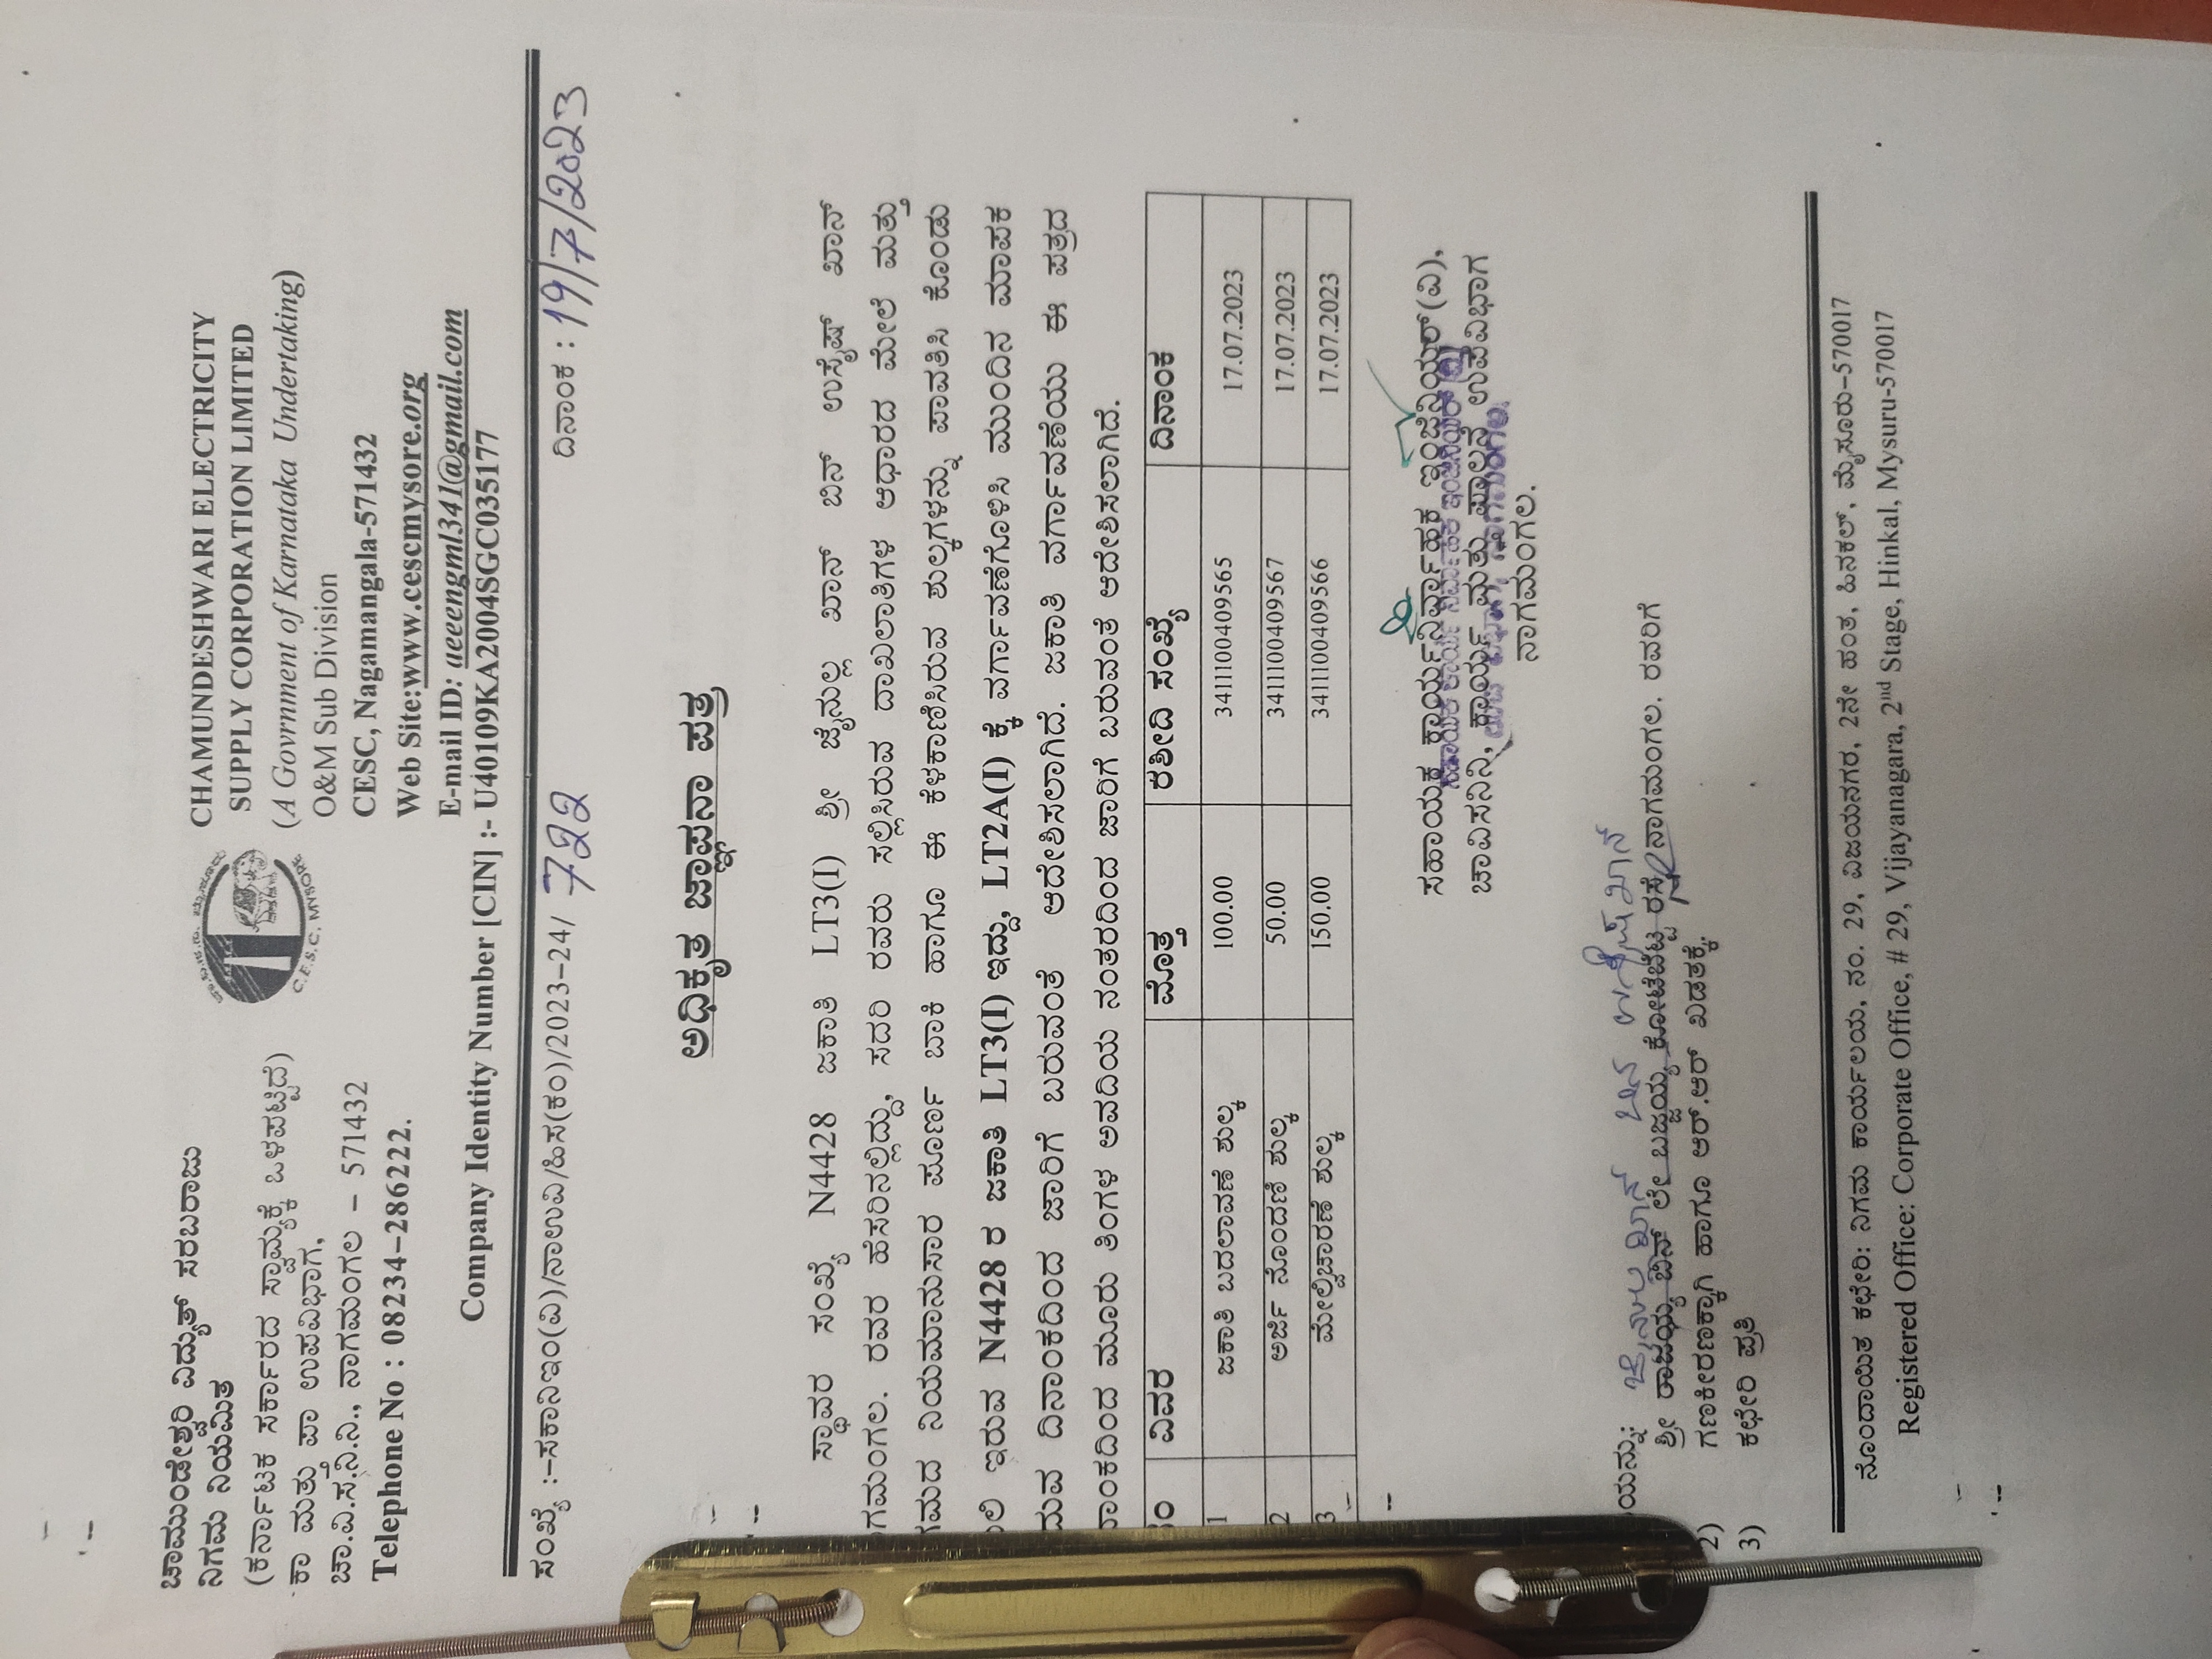 ಚಾಮುಂಡೇಶ್ವರಿ ವಿದ್ಯುತ್ ಸರಬರಾಜು
ನಿಗಮ ನಿಯಮಿತ
(ಕರ್ನಾಟಕ ಸರ್ಕಾರದ ಸ್ವಾಮ್ಯಕ್ಕೆ ಒಳಪಟ್ಟಿದೆ)
ಕಾ ಮತ್ತು ಪಾ ಉಪವಿಭಾಗ,
ಚಾ.ವಿ.ಸ.ನಿ.ನಿ., ನಾಗಮಂಗಲ – 571432
Telephone No : 08234–286222.
C.E.S.C. MYSORE
CHAMUNDESHWARI ELECTRICITY
SUPPLY CORPORATION LIMITED
(A Govrnment of Karnataka Undertaking)
O&M Sub Division
CESC, Nagamangala-571432
Web Site:www.cescmysore.org
E-mail ID: aeeengml341@gmail.com
Company Identity Number [CIN] :- U40109KA2004SGC035177
ಸಂಖ್ಯೆ :–ಸಕಾನಿಇಂ(ವಿ)/ನಾಉವಿ/ಹಿಸ(ಕಂ)/2023–24/ 722 ದಿನಾಂಕ : 19/7/2023
ಅಧಿಕೃತ ಜ್ಞಾಪನಾ ಪತ್ರ
ಸ್ಥಾವರ ಸಂಖ್ಯೆ N4428 ಜಕಾತಿ LT3(I) ಶ್ರೀ ಜೈನುಲ್ಲ ಖಾನ್ ಬಿನ್ ಉಸ್ಮೆಷ್ ಖಾನ್
ಗಮಂಗಲ. ರವರ ಹೆಸರಿನಲ್ಲಿದ್ದು, ಸದರಿ ರವರು ಸಲ್ಲಿಸಿರುವ ದಾಖಲಾತಿಗಳ ಆಧಾರದ ಮೇಲೆ ಮತ್ತು
ಗಮದ ನಿಯಮಾನುಸಾರ ಪೂರ್ಣ ಬಾಕಿ ಹಾಗೂ ಈ ಕೆಳಕಾಣಿಸಿರುವ ಶುಲ್ಕಗಳನ್ನು ಪಾವತಿಸಿ ಕೊಂಡು
ಲಿ ಇರುವ N4428 ರ ಜಕಾತಿ LT3(I) ಇದ್ದು, LT2A(I) ಕ್ಕೆ ವರ್ಗಾವಣೆಗೊಳಿಸಿ ಮುಂದಿನ ಮಾಪಕ
ಮವ ದಿನಾಂಕದಿಂದ ಜಾರಿಗೆ ಬರುವಂತೆ ಆದೇಶಿಸಲಾಗಿದೆ. ಜಕಾತಿ ವರ್ಗಾವಣೆಯು ಈ ಪತ್ರದ
ನಾಂಕದಿಂದ ಮೂರು ತಿಂಗಳ ಅವದಿಯ ನಂತರದಿಂದ ಜಾರಿಗೆ ಬರುವಂತೆ ಆದೇಶಿಸಲಾಗಿದೆ.
ಸಂ ವಿವರ ಮೊತ್ತ ರಶೀದಿ ಸಂಖ್ಯೆ ದಿನಾಂಕ
1 ಜಕಾತಿ ಬದಲಾವಣೆ ಶುಲ್ಕ 100.00 3411100409565 17.07.2023
2 ಅರ್ಜಿ ನೊಂದಣಿ ಶುಲ್ಕ 50.00 3411100409567 17.07.2023
3 ಮೇಲ್ವಿಚಾರಣೆ ಶುಲ್ಕ 150.00 3411100409566 17.07.2023
ಸಹಾಯಕ ಕಾರ್ಯನಿರ್ವಾಹಕ ಇಂಜಿನಿಯರ್(ವಿ),
ಚಾವಿಸನಿನಿ, ಕಾರ್ಯ ಮತ್ತು ಪಾಲನೆ ಉಪವಿಭಾಗ
ನಾಗಮಂಗಲ.
ಯನ್ನು:
ಶ್ರೀ ರಾಜಯ್ಯ ಬಿನ್ ಲೇ ಬಜ್ಜಯ್ಯ ಕೋಟೆಬೆಟ್ಟ ರಸ್ತೆ ನಾಗಮಂಗಲ. ರವರಿಗೆ
2) ಗಣಕೀಕರಣಕ್ಕಾಗಿ ಹಾಗೂ ಆರ್.ಆರ್ ಖಡತಕ್ಕೆ.
3) ಕಛೇರಿ ಪ್ರತಿ
ನೊಂದಾಯಿತ ಕಛೇರಿ: ನಿಗಮ ಕಾರ್ಯಲಯ, ನಂ. 29, ವಿಜಯನಗರ, 2ನೇ ಹಂತ, ಹಿನಕಲ್, ಮೈಸೂರು–570017
Registered Office: Corporate Office, # 29, Vijayanagara, 2nd Stage, Hinkal, Mysuru-570017